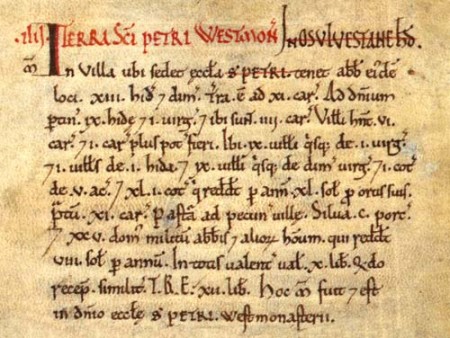 .iiij. TERRA SĈI PETRI WESTMON̄ IN OSULVESTANE HD̄.
M̄ In Villa ubi sedet æccła S. PETRI. tenet abb̄ eiꝰdē
loci. xiii. hid̄ 7 dim̄. Tr̄a. ē ad xi. car̄. Ad dn̄ium
ptin̄. ix. hidę 7 i. virg̃. 7 ibi sun̄. iiii. car̄. Villi hn̄t. vi.
car̄. 7 i. car̄ plus pot̃ fieri. Ibi. ix. uiłłi q̄sq; de. i. virg̃.
7 i. uiłłs de. i. hida. 7 ix. uiłłi q̄sq; de dim̄ virg̃. 7 i. cot̃
de. v. ac̄. 7 xl. i. cot̃ q̄ redd̄t p ann̄. xl. sol̃ p ortis suis.
P̃tū. xi. car̄. Past̄a ad pecun̄ uillę. Silua. c. porc̄.
7 xxv. dom̄ militū abb̄is 7 alioꝝ hōum. qui redd̄t
viii. sol̃ p annū. In totis ualent̃ ual̃. x. lib̄. Q̄do
recep̄. similit̃. T.R.E. xii. lib̄. Hoc M̄ fuit 7 est
in dn̄io æccłę S. PETRI. westmonasterii.